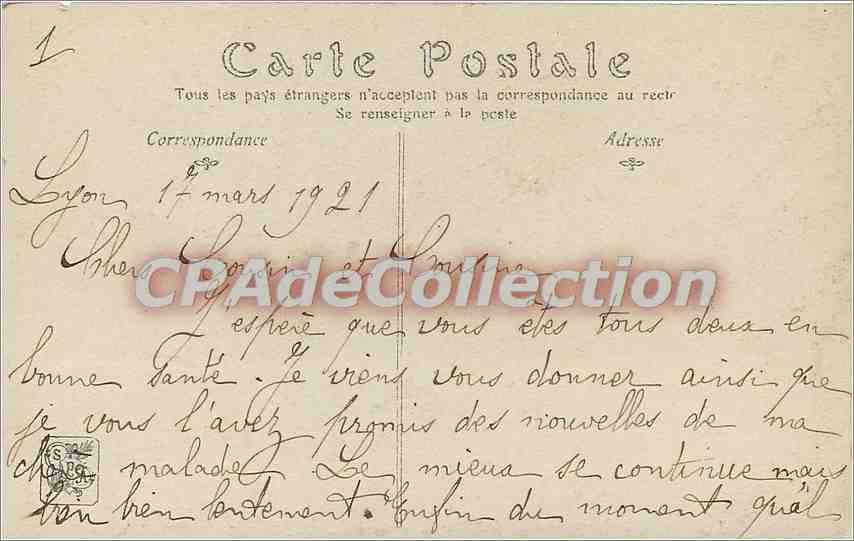 1
Carte Postale
Tous les pays étrangers n'acceptent pas la correspondance au recto
Se renseigner à la poste
Correspondance
Adresse
Lyon 17 mars 1921
Chers Cousin et Cousine
CPAdeCollection
J'espère que vous êtes tous deux en
bonne santé. Je viens vous donner ainsi que
je vous l'avez promis des nouvelles de ma
chère malade. Le mieux se continue mais
bien lentement. Enfin du moment qu'il